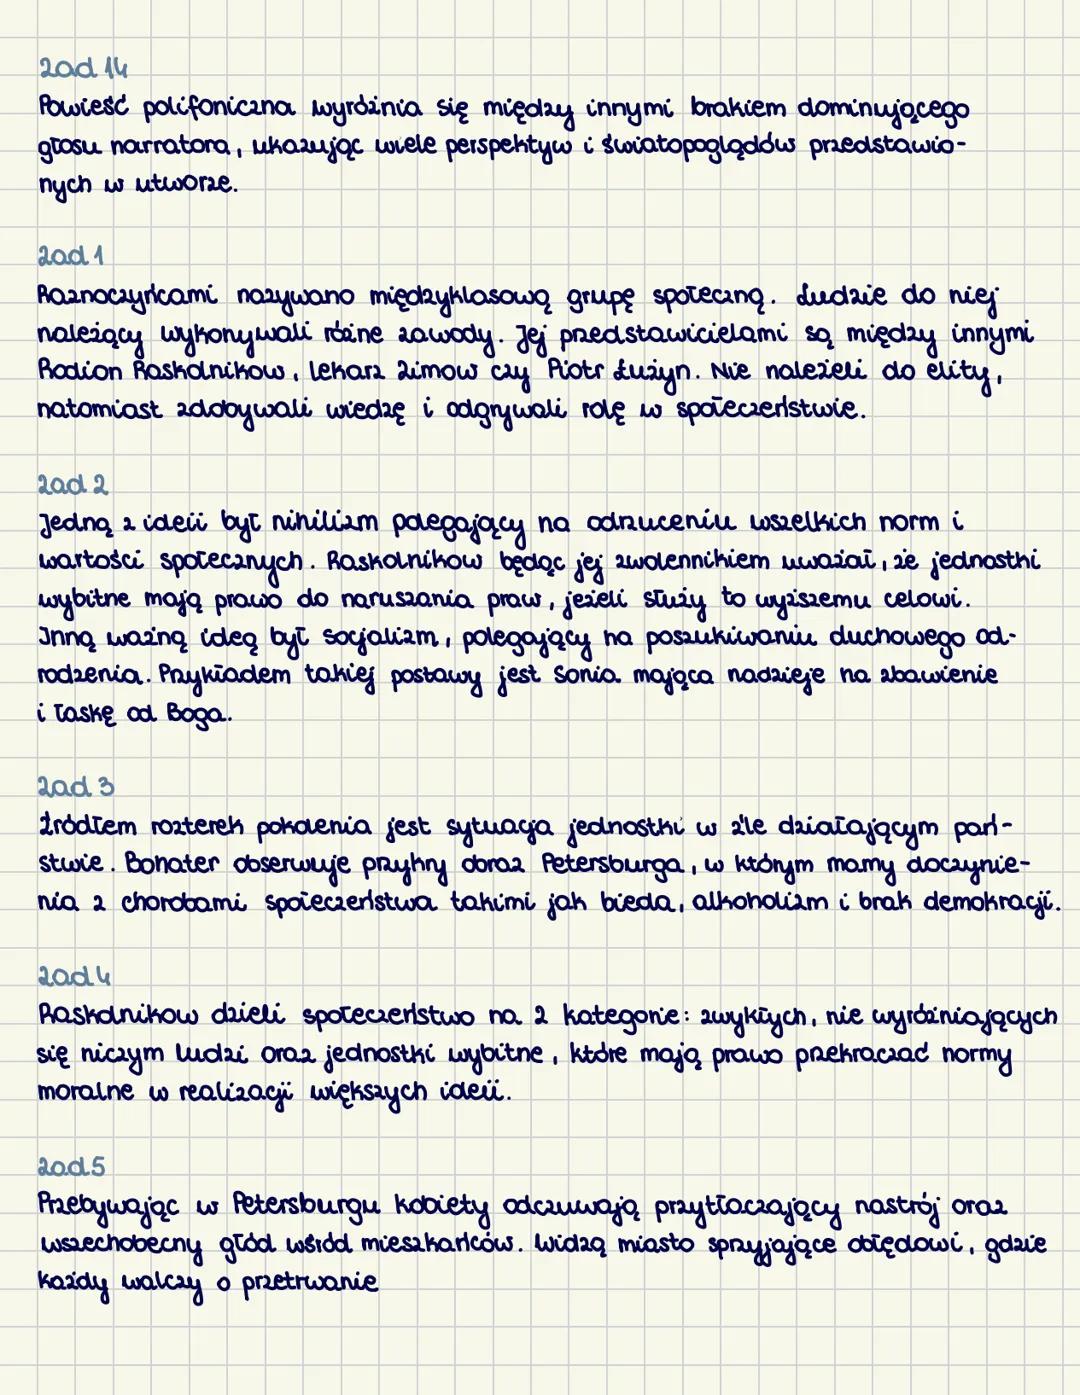 zad 14
Powieść polifoniczna wyróżnia się między innymi brakiem dominującego
głosu narratora, ukazując wiele perspektyw i światopoglądów przedstawio-
nych w utworze.
zad 1
Raznoczyńcami nazywano międzyklasową grupę społeczną. Ludzie do niej
należący wykonywali różne zawody. Jej przedstawicielami są między innymi
Rodion Raskolnikow, lekarz Zimow czy Piotr Łużyn. Nie należeli do elity,
natomiast zdobywali wiedzę i odgrywali rolę w społeczeństwie.
zad 2
Jedną z ideii był nihilizm polegający na odrzuceniu wszelkich norm i
wartości społecznych. Raskolnikow będąc jej zwolennikiem uważał, że jednostki
wybitne mają prawo do naruszania praw, jeżeli służy to wyższemu celowi.
Inną ważną ideą był socjalizm, polegający na poszukiwaniu duchowego od-
rodzenia. Przykładem takiej postawy jest Sonia mająca nadzieje na zbawienie
i łaskę od Boga.
zad 3
Źródłem rozterek pokolenia jest sytuacja jednostki w źle działającym pań-
stwie. Bohater obserwuje przykry obraz Petersburga, w którym mamy doczynie-
nia z chorobami społeczeństwa takimi jak bieda, alkoholizm i brak demokracji.
zad 4
Raskolnikow dzieli społeczeństwo na 2 kategorie: zwykłych, nie wyróżniających
się niczym ludzi oraz jednostki wybitne, które mają prawo przekraczać normy
moralne w realizacji większych ideii.
zad 5
Przebywając w Petersburgu kobiety odczuwają przytłaczający nastrój oraz
wszechobecny głód wśród mieszkańców. Widzą miasto sprzyjające obłędowi, gdzie
każdy walczy o przetrwanie